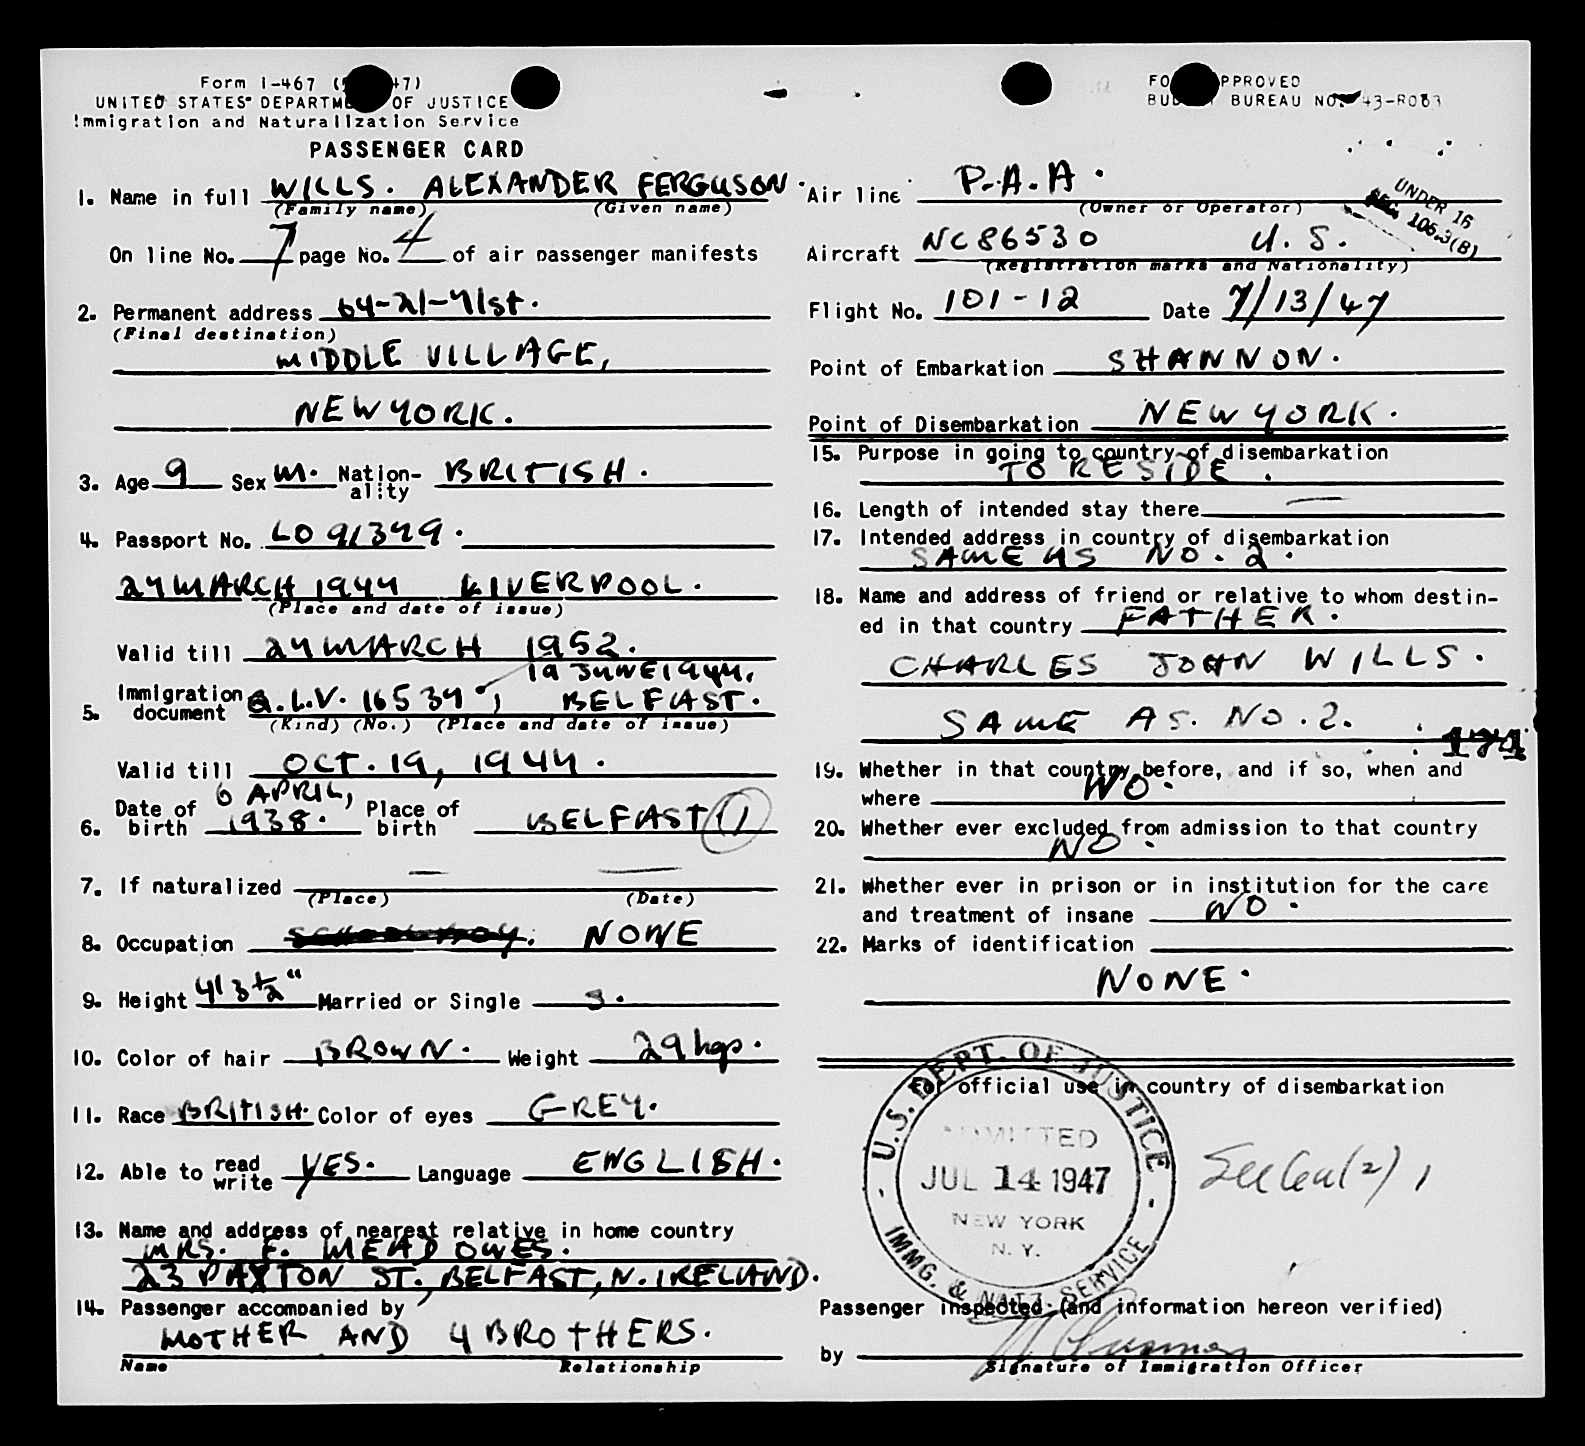 Form I-467 ( 47)
UNITED STATES DEPARTMENT OF JUSTICE
Immigration and Naturalization Service
PASSENGER CARD
1. Name in full WILLS. ALEXANDER FERGUSON.
(Family name) (Given name)
On line No. 7 page No. 4 of air passenger manifests
2. Permanent address 64-21-71st.
(Final destination)
MIDDLE VILLAGE,
NEW YORK.
3. Age 9 Sex M. Nation-ality BRITISH.
4. Passport No. LO 91379.
24 MARCH 1947 LIVERPOOL.
(Place and date of issue)
Valid till 24 MARCH 1952.
19 JUNE 1947.
5. Immigration document Q.I.V. 16537, BELFAST.
(Kind) (No.) (Place and date of issue)
Valid till OCT. 19, 1947.
6. Date of birth 6 APRIL, 1938. Place of birth BELFAST (11)
7. If naturalized — —
(Place) (Date)
8. Occupation SCHOOLBOY. NONE
9. Height 4' 3 1/2" Married or Single S.
10. Color of hair BROWN. Weight 29 kgs.
11. Race BRITISH. Color of eyes GREY.
12. Able to read write YES. Language ENGLISH.
13. Name and address of nearest relative in home country
MRS. F. MEADOWES.
23 PAXTON ST., BELFAST, N. IRELAND.
14. Passenger accompanied by
MOTHER AND 4 BROTHERS.
Name Relationship
FO PPROVED
BUDGET BUREAU NO. 43-R083
Air line P.A.A.
(Owner or Operator)
UNDER 16
SEC. 106.3(B)
Aircraft NC86530 U.S.
(Registration marks and Nationality)
Flight No. 101-12 Date 7/13/47
Point of Embarkation SHANNON.
Point of Disembarkation NEW YORK.
15. Purpose in going to country of disembarkation
TO RESIDE.
16. Length of intended stay there —
17. Intended address in country of disembarkation
SAME AS NO. 2.
18. Name and address of friend or relative to whom destin-
ed in that country FATHER.
CHARLES JOHN WILLS.
SAME AS. NO. 2.
171
19. Whether in that country before, and if so, when and
where NO.
20. Whether ever excluded from admission to that country
NO.
21. Whether ever in prison or in institution for the care
and treatment of insane NO.
22. Marks of identification
NONE.
For official use in country of disembarkation
U.S. DEPT. OF JUSTICE
ADMITTED
JUL 14 1947
NEW YORK
N. Y.
IMMG. & NATZ. SERVICE
Passenger inspected (and information hereon verified)
by
Signature of Immigration Officer